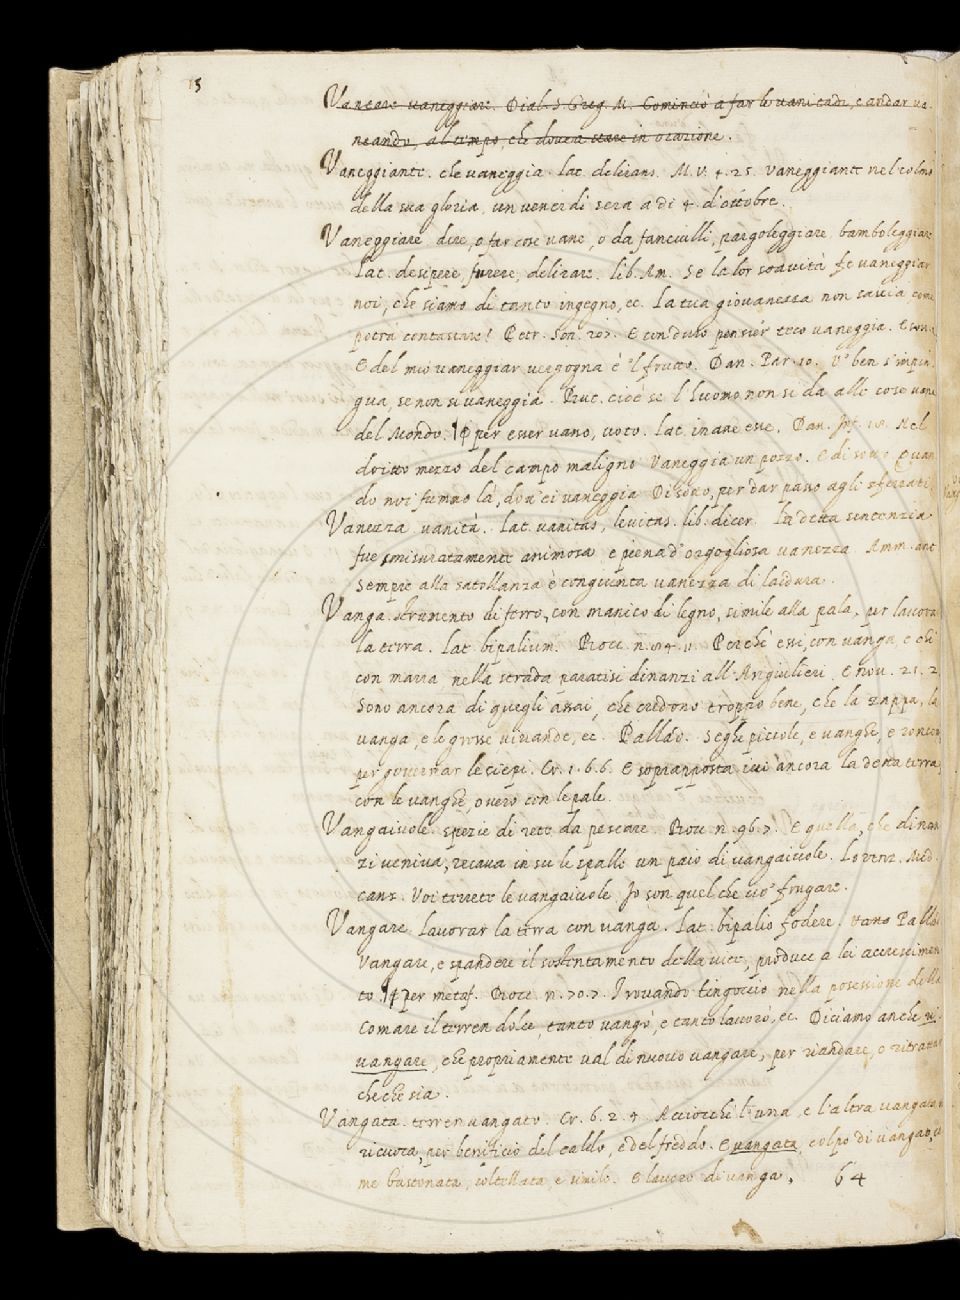 15
Vaneare vaneggiare. Dial. S. Greg. M. Cominciò a far le vanitadi, e andar va-
neando, al tempo, che dovea stare in orazione.
Vaneggiante. che vaneggia. lat. delirans. M. V. 4. 25. vaneggiante nel colmo
della sua gloria, un venerdi sera a di 4. d'ottobre.
Vaneggiare dire, o far cose vane, o da fanciulli, pargoleggiare bamboleggiare
lat. desipere, furere, delirare. lib. Am. Se la lor soavità fe vaneggiar
noi, che siamo di tanto ingegno, ec. la tua giovanezza non savia come
potrà contastare? Petr. Son. 207. E con duro pensier teco vaneggia. E son.
E del mio vaneggiar vergogna è 'l frutto. Dan. Par. 10. V' ben s'impin-
gua, se non si vaneggia. But. cioè se l'huomo non si da alle cose vane
del Mondo. ¶ per esser vano, voto. lat. inane esse. Dan. Inf. 18. Nel
dritto mezzo del campo maligno Vaneggia un pozzo. E di sotto Quan-
do noi fummo là, dov' ei vaneggia Di sotto, per dar passo agli sferzati
Vanezza vanità. lat. vanitas, levitas. lib. dicer. la detta sentenzia
fue smisuratamente animosa e piena d'orgogliosa vanezza. Amm. ant.
Sempre alla satollanza è congiunta vanezza di laidura.
Vanga strumento di ferro, con manico di legno, simile alla pala, per lavorar
la terra. lat. bipalium. Bocc. n. Perchè essi, con vanga, e chi
con marra nella strada paratisi dinanzi all' Arigulieri. E nov. 21. 2
Sono ancora di quegli assai, che credono troppo bene, che la zappa, la
vanga, e le grosse vivande, ec. Pallad. Seghe piccole, e vanghe, e ronconi
per governar le siepi. Cr. 1. 6. 6. E soprapposta ivi ancora la detta terra,
con le vanghe, overo con le pale.
Vangaiuole. spezie di rete da pescare. Bocc. n. 96. 7. E quella, che dinan-
zi veniva, recava in su le spalle un paio di vangaiuole. Lorenz. Med.
canz. Voi torrete le vangaiuole Io son quel che vo' frugare.
Vangare. lavorar la terra con vanga. lat. bipalio fodere. Pallad.
Vangare, e spandere il sostentamento della vite, produce a lei accrescimen-
to ¶ Per metaf. Bocc. n. 70. 7. Trovando tingoccio nella posessione della
comare il terren dolce, tanto vangò, e tanto lavorò, ec. Diciamo anche ri-
vangare, che propriamente val di nuovo vangare, per riandare, o ritrattar
che che sia.
Vangata. terren vangato. Cr. 6. 2. 4. Acciocchè l'una, e l'altra vangata
ricuoca, per benificio del caldo, e del freddo. E vangata, colpo di vanga, co-
me bastonata, coltellata, e simile. E lavoro di vanga.
64